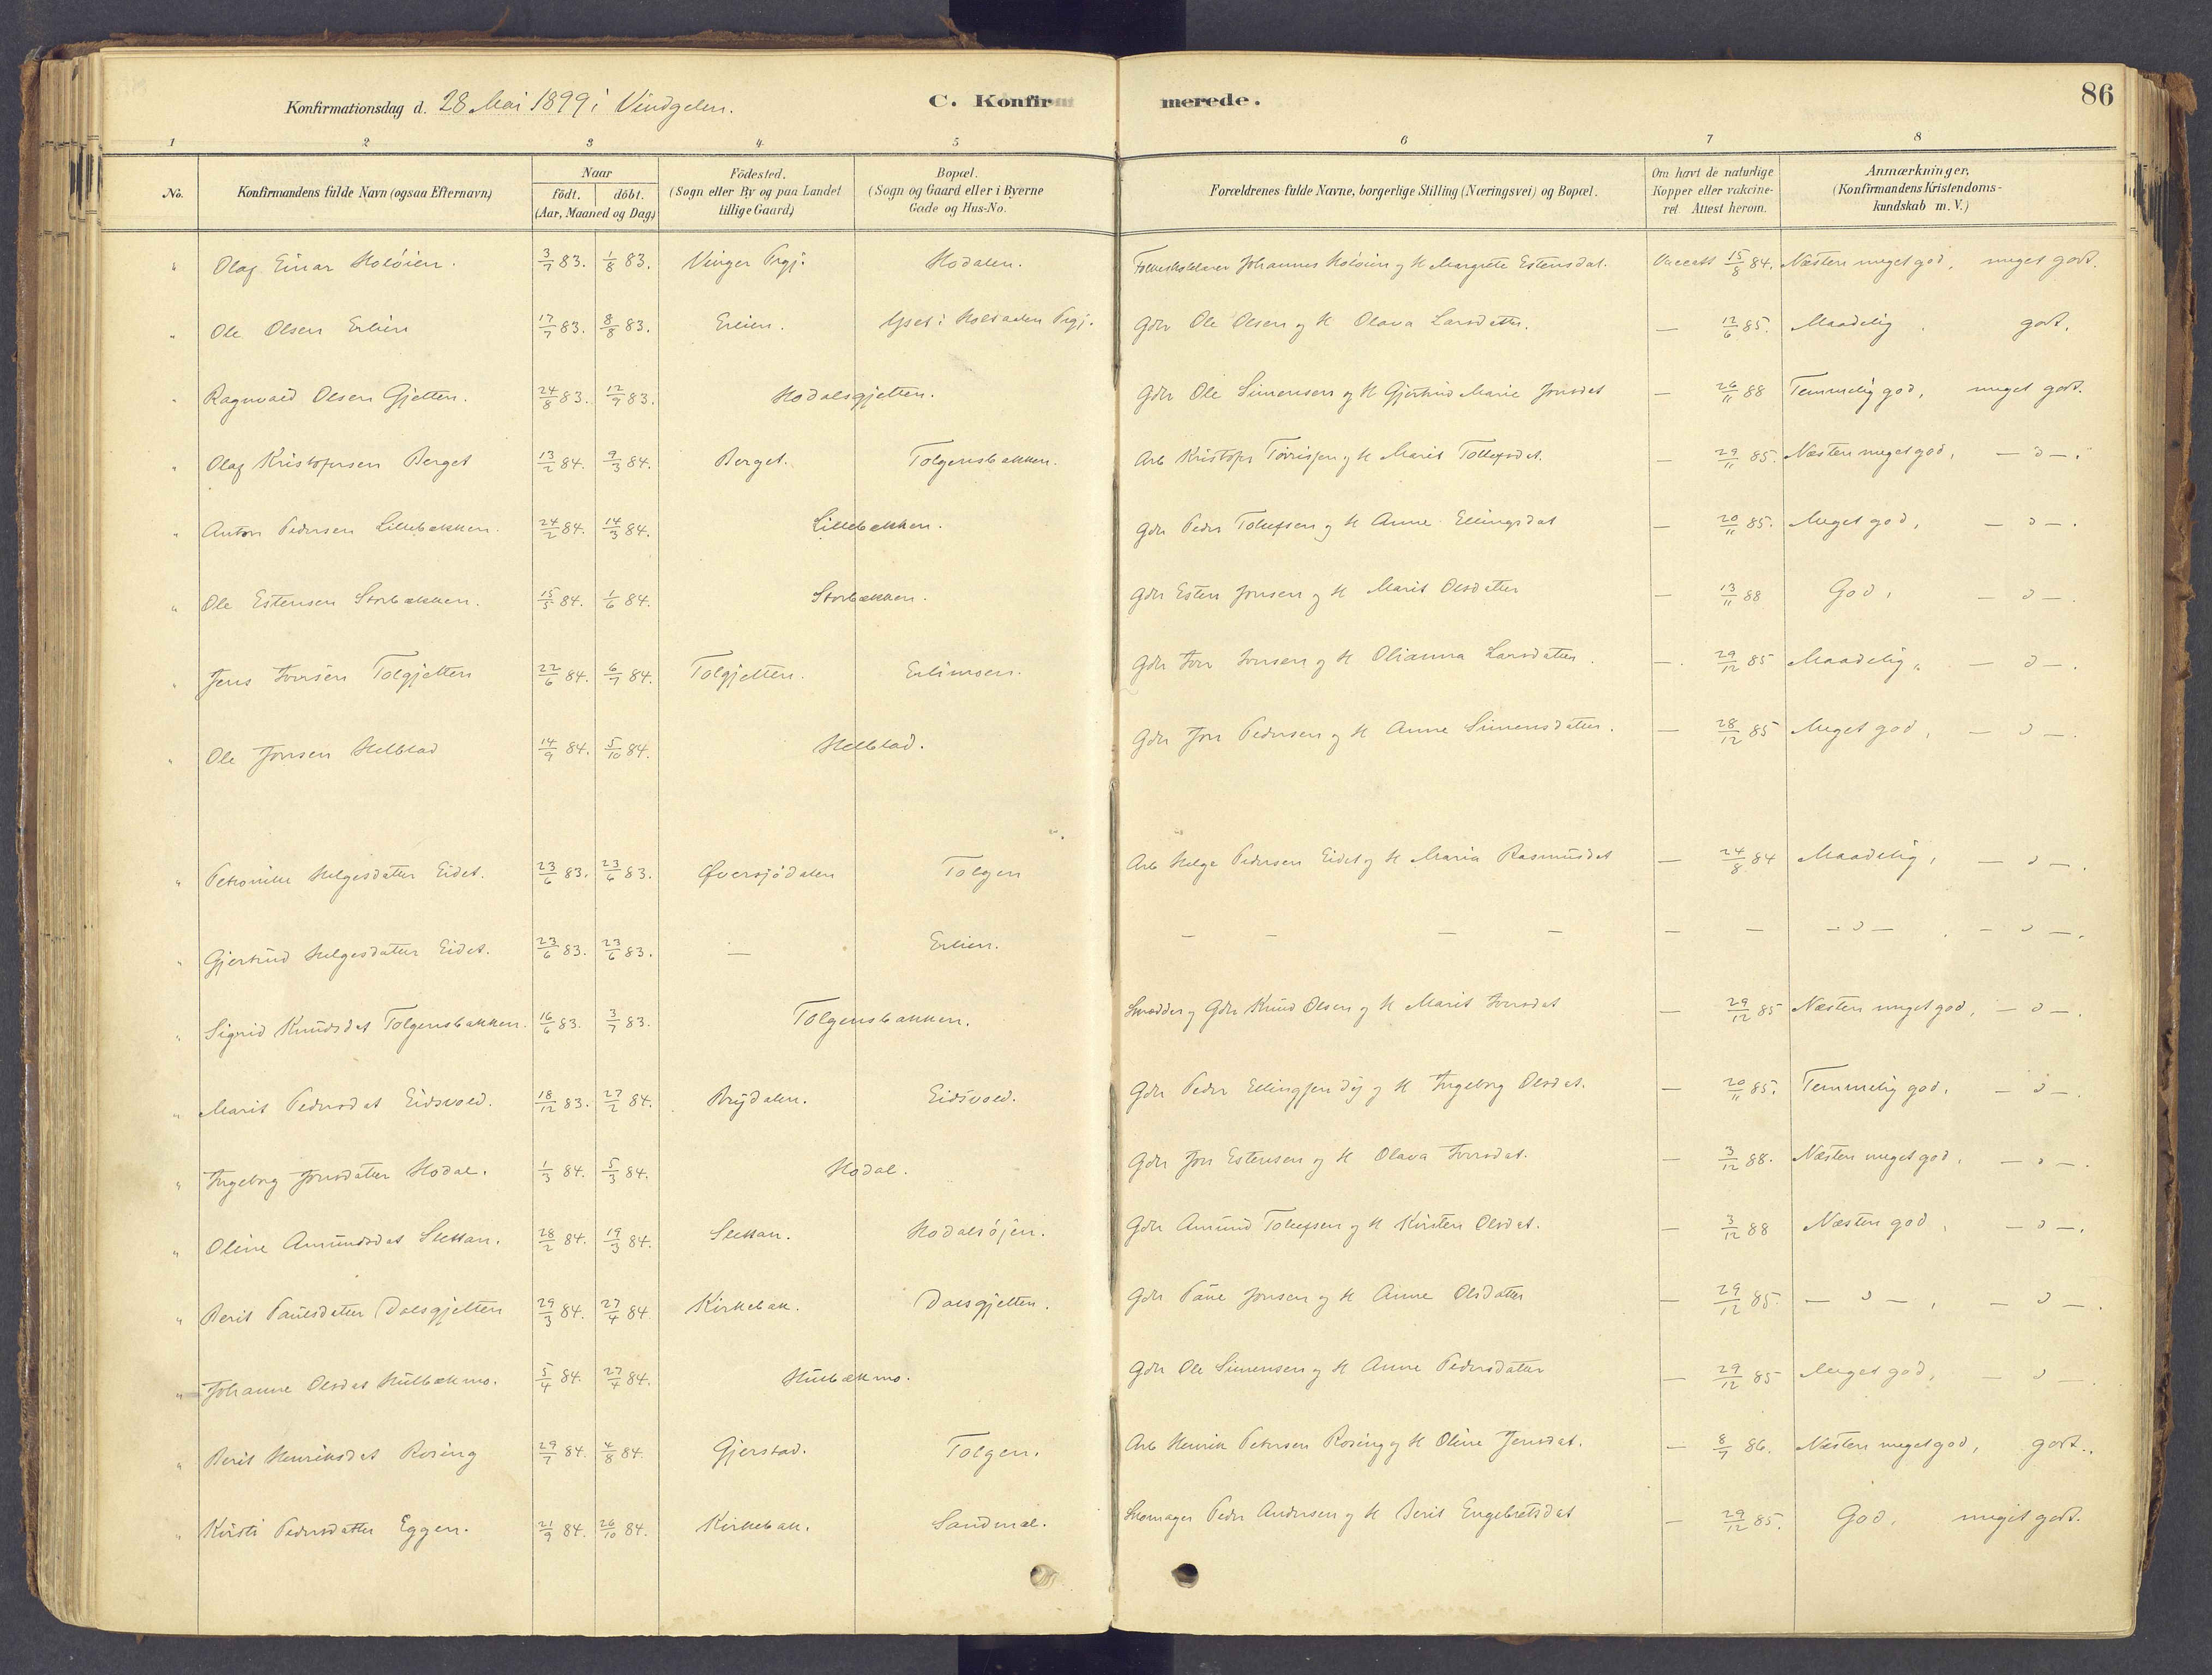 86
Konfirmationsdag d. 28 Mai 1899 i Vindgelen.
C. Konfirmerede.
1 2 3 4 5 6 7 8
No. Konfirmandens fulde Navn (ogsaa Efternavn) Naar födt. döbt. (Aar, Maaned og Dag) Födested. (Sogn eller By og paa Landet tillige Gaard) Bopæl. (Sogn og Gaard eller i Byerne Gade og Hus-No. Forældrenes fulde Navne, borgerlige Stilling (Næringsvei) og Bopæl. Om havt de naturlige Kopper eller vakcineret. Attest herom. Anmærkninger, (Konfirmandens Kristendomskundskab m. V.)
" Olaf Einar Holöien. 3/7 83. 1/8 83. Vinger Prgj. Hodalen. Johannes Holöien og H Margrete Estensdat. 15/8 84. Næsten meget god, meget godt.
" Ole Olsen Erlien 17/7 83. 8/8 83. Erlien. Prgj. Gdr Ole Olsen og H Olava Larsdatter. — 12/6 85. Maadelig, godt.
" Ragnvald Olsen Gjetten. 24/8 83. 12/9 83. Hodalsgjetten. Gdr Ole Simensen og H Gjertrud Marie Jonsdat — 26/11 88 Temmelig god, meget godt.
" Olaf Kristofersen Berget 13/2 84. 9/3 84. Berget. Tolgensbakken. Arb Kristofer og H Marit Tollefsdat. — 29/11 85. Næsten meget god, — d —.
" Anton Pedersen Lillebækken. 24/2 84. 14/3 84. Lillebækken. Gdr Peder Tollefsen og H Anne Ellingsdat — 20/11 85. Meget god, — d —.
" Ole Estensen Storbækken. 15/5 84. 1/6 84. Storbækken. Gdr Esten Jonsen og H Marit Olsdatter — 13/11 88 God, — d —.
" Jens Iversen Tolgjetten 22/6 84. 6/7 84. Tolgjetten. Erlimoen. Gdr Iver Iversen og H Olianna Larsdatter. — 29/12 85 Maadelig, — d —.
" Ole Jonsen Helblad 14/9 84. 5/10 84. Helblad. Gdr Jon Pedersen og H Anne Simensdatter. — 28/12 85 Meget god, — d —.
" Petronille Helgesdatter Eidet. 23/6 83. 23/6 83. Översjödalen Tolgen Arb Helge Pedersen Eidet og H Maria Rasmusdat — 24/8 84 Maadelig, — d —.
" Gjertrud Helgesdatter Eidet. 23/6 83. 23/6 83. — Erlien. — — — — — — — d —. — d —.
" Sigrid Knudsdat Tolgensbakken. 16/6 83. 3/7 83. Tolgensbakken. Skrædder og Gdr Knud Olsen og H Marit Iversdat — 29/12 85 Næsten meget god, — d —.
" Marit Pedersdat Eidsvold. 18/12 83. 27/2 84. Brydalen. Eidsvold. Gdr Peder Ellingsen og H Ingeborg Olsdat. — 20/11 85. Temmelig god, — d —.
" Ingeborg Jonsdatter Hodal. 1/3 84. 5/3 84. Hodal. Gdr Jon Estensen og H Olava Iversdat. — 3/12 88. Næsten meget god, — d —.
" Oline Amundsdat Slettan. 28/2 84. 19/3 84. Slettan. Hodalsöjen. Gdr Amund Tollefsen og H Kirsten Olsdat. — 3/12 88 Næsten god, — d —.
" Berit Paulsdatter Dalsgjetten 29/3 84. 27/4 84 Kirkebak. Dalsgjetten. Gdr Paul Jonsen og H Anne Olsdatter — 29/12 85. — d —, — d —.
" Johanne Olsdat Hulbækmo. 5/4 84. 27/4 84. Hulbækmo. Gdr Ole Simensen og H Anne Pedersdatter — 29/12 85 Meget god, — d —.
" Berit Henriksdat Rosing 29/7 84. 4/8 84. Gjerstad. Tolgen. Arb Henrik Petersen Rosing og H Oline Jensdat. — 8/7 86. Næsten meget god, godt.
" Kirsti Pedersdatter Eggen. 21/9 84. 26/10 84. Kirkebak. Sandmæl. Skomager Peder Andersen og H Berit Engebretsdat — 29/12 85. God, meget godt.